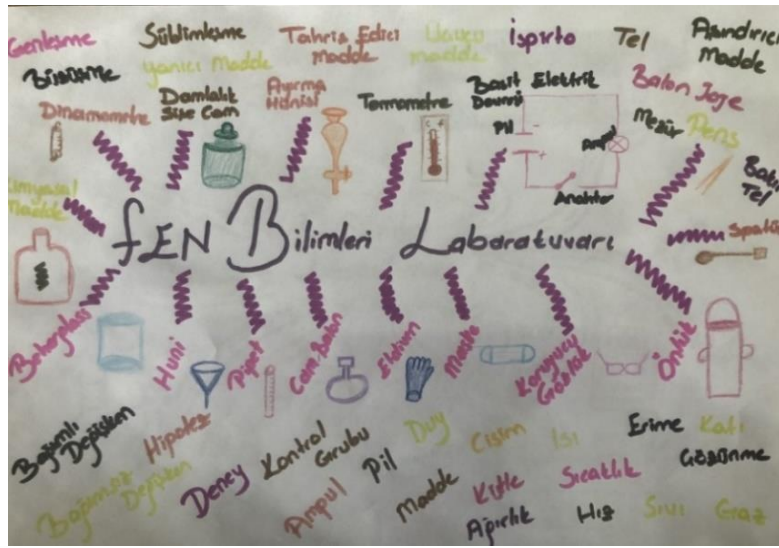 Genleşme
Süblimleşme
Tahriş Edici
Madde
Uçucu
madde
İspirto
Tel
Aşındırıcı
Madde
Büzüşme
Yanıcı Madde
Dinamometre
Damlalık
Şişe Cam
Ayırma
Hunisi
Termometre
C F
Basit Elektrik
Devresi
Pil
Ampul
Anahtar
Balon Joje
Mezür
Pens
Bakır
Tel
Kimyasal
Madde
FEN Bilimleri Labaratuvarı
Spatül
Beherglass
Huni
Pipet
Cam Balon
Eldiven
Maske
Koruyucu
Gözlük
Önlük
Bağımlı
Değişken
Hipotez
Bağımsız
Değişken
Deney
Kontrol
Grubu
Ampul
Pil
Duy
Madde
Cisim
Isı
Erime
Katı
Kütle
Sıcaklık
Çözünme
Ağırlık
Hız
Sıvı
Graz